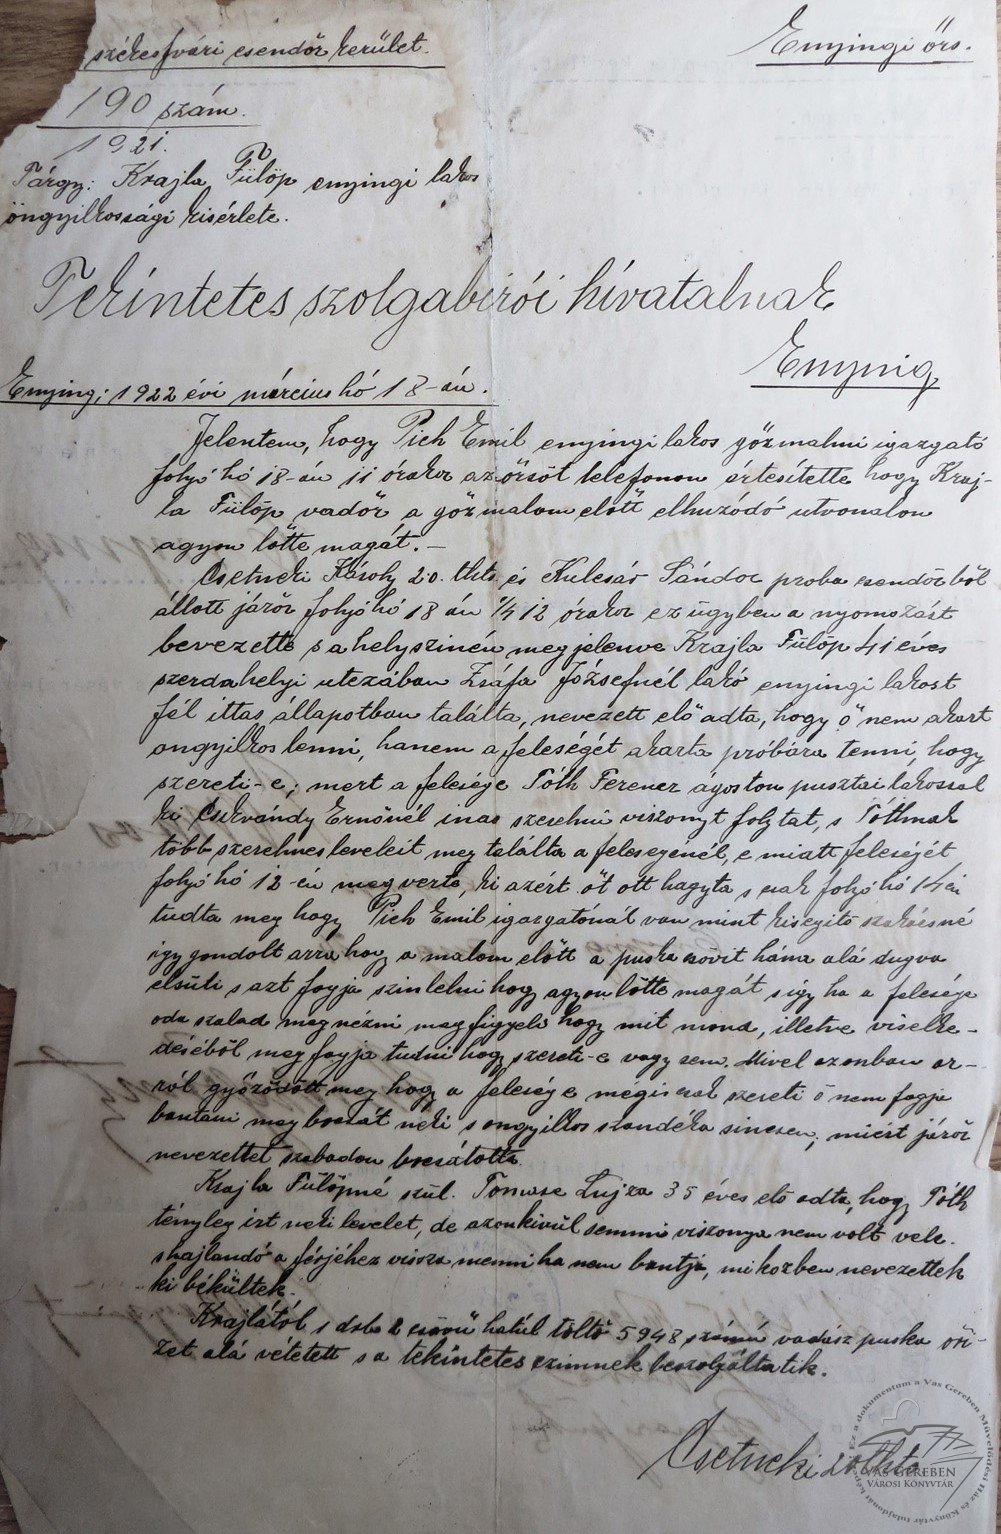 székesfvári csendőr kerület.
Enyingi őrs.
190 szám.
1921.
Tárgy: Krajla Fülöp enyingi lakos
öngyilkossági kisérlete.
Tekintetes szolgabirói hivatalnak
Enynig
Enying, 1922 évi március hó 18-án.
Jelentem, hogy Pich Emil enyingi lakos gőzmalmi igazgató
folyó hó 18-án 11 órakor az őrsöt telefonon értesítette hogy Kraj-
la Fülöp vadőr a gőzmalom előtt elhuzódó utvonalon
agyon lőtte magát.-
Csetneki Károly 2.o. thts. és Kulcsár Sándor proba csendőrből
állott járőr folyó hó 18 án 1/4 12 órakor ez ügyben a nyomozást
bevezette s a helyszinén megjelenve Krajla Fülöp 41 éves
szerdahelyi utczában Zsáfa Józsefnél lakó enyingi lakost
fél ittas állapotban találta, nevezett elő adta, hogy ő nem akart
ongyilkos lenni, hanem a feleségét akarta próbára tenni, hogy
szereti-e; mert a felesége Tóth Ferencz ágoston pusztai lakossal
ki Csekvándy Ernőnél inas szerelmi viszonyt folytat, s Tóthnak
több szerelmes leveleit meg találta a feleségénél, e miatt feleségét
folyó hó 12-én meg verte, ki azért őt ott hagyta s csak folyó hó 14 én
tudta meg hogy Pich Emil igazgatónál van mint kisegitő szakácsné
igy gondolt arra hogy a malom előtt a puska csövit hóna alá dugva
elsüti s azt fogja szinlelni hogy agyon lőtte magát s igy ha a felesége
oda szalad meg nézni meg figyeli hogy mit mond, illetve viselke-
déséből meg fogja tudni hogy szereti-e vagy sem. Mivel azonban ar-
ról győződött meg hogy a feleség e mégis csak szereti ő nem fogja
bántani meg bocsát neki s ongyilkos szándéka sincsen, miért járőr
nevezettet szabadon bocsátotta.
Krajla Fülöpné szül. Tomasc Lujza 35 éves elő adta, hogy Tóth
tényleg irt neki levelet, de azonkivül semmi viszonya nem volt vele.
s hajlandó a férjéhez vissza menni ha nem bántja, miközben nevezettek
ki békültek.
Krajlától 1 drb 2 csövü hátul töltő 5948 számú vadász puska őri-
zet alá vétetett s a tekintetes czimnek beszolgáltatik.
Csetneki 2o thts.
Ez a dokumentum a Vas Gereben Művelődési Ház és Könyvtár tulajdonát képezi
VAS GEREBEN
VÁROSI KÖNYVTÁR